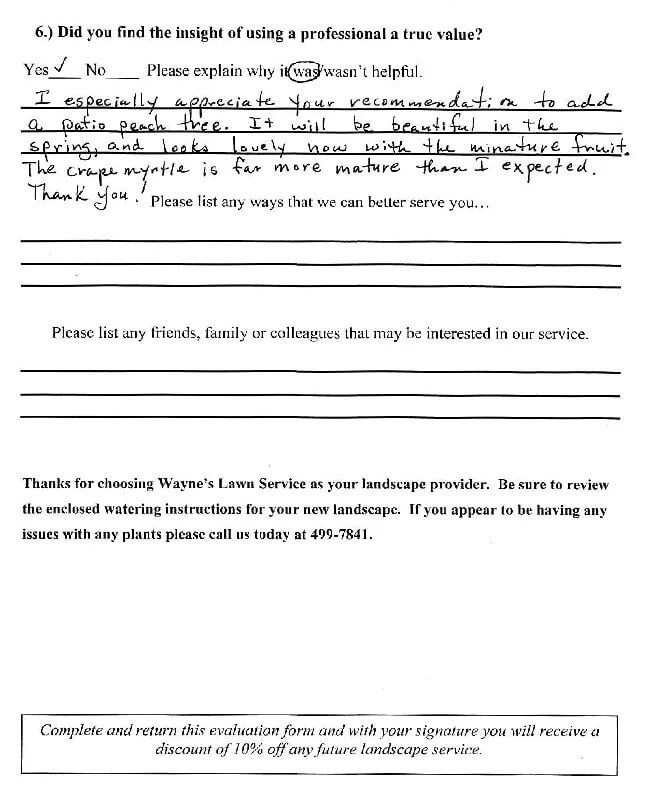 6.) Did you find the insight of using a professional a true value?
Yes ✓ No ___ Please explain why it was/wasn't helpful.
I especially appreciate your recommendation to add
a patio peach tree. It will be beautiful in the
spring, and looks lovely now with the minature fruit.
The crape myrtle is far more mature than I expected.
Thank you! Please list any ways that we can better serve you...
Please list any friends, family or colleagues that may be interested in our service.
Thanks for choosing Wayne's Lawn Service as your landscape provider. Be sure to review
the enclosed watering instructions for your new landscape. If you appear to be having any
issues with any plants please call us today at 499-7841.
Complete and return this evaluation form and with your signature you will receive a
discount of 10% off any future landscape service.